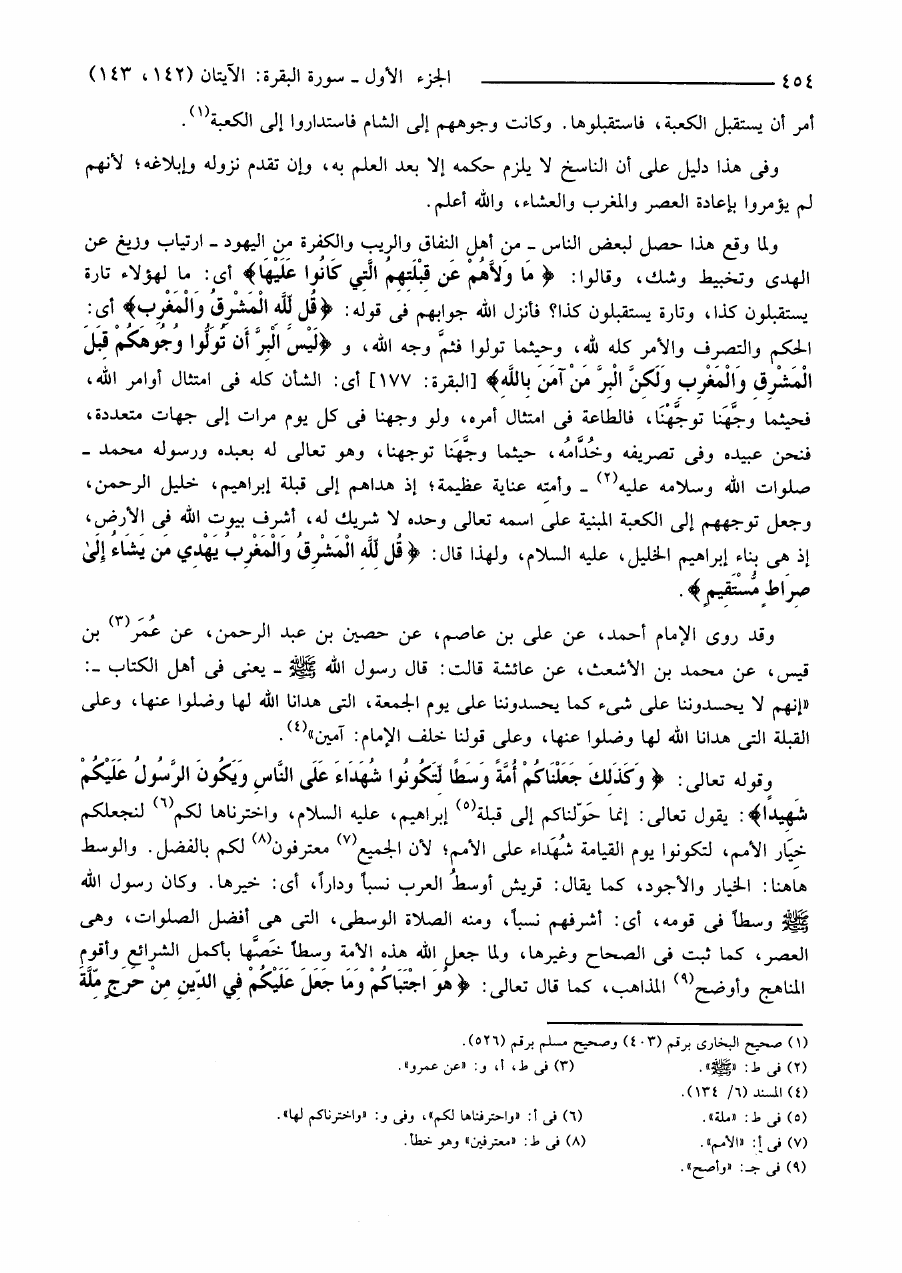 ٤٥٤ ــــــــــــــــــــــــــــــــ الجزء الأول ـ سورة البقرة: الآيتان (١٤٢، ١٤٣)
أمر أن يستقبل الكعبة، فاستقبلوها. وكانت وجوههم إلى الشام فاستداروا إلى الكعبة(١).
وفى هذا دليل على أن الناسخ لا يلزم حكمه إلا بعد العلم به، وإن تقدم نزوله وإبلاغه؛ لأنهم
لم يؤمروا بإعادة العصر والمغرب والعشاء، والله أعلم.
ولما وقع هذا حصل لبعض الناس ـ من أهل النفاق والريب والكفرة من اليهود ـ ارتياب وزيغ عن
الهدى وتخبيط وشك، وقالوا: ﴿ مَا وَلاَّهُمْ عَن قِبْلَتِهِمُ الَّتِي كَانُوا عَلَيْهَا﴾ أى: ما لهؤلاء تارة
يستقبلون كذا، وتارة يستقبلون كذا؟ فأنزل الله جوابهم فى قوله: ﴿قُل لِّلَّهِ الْمَشْرِقُ وَالْمَغْرِبُ﴾ أى:
الحكم والتصرف والأمر كله لله، وحيثما تولوا فثمَّ وجه الله، و ﴿لَيْسَ الْبِرَّ أَن تُوَلُّوا وُجُوهَكُمْ قِبَلَ
الْمَشْرِقِ وَالْمَغْرِبِ وَلَكِنَّ الْبِرَّ مَنْ آمَنَ بِاللَّهِ﴾ [البقرة: ١٧٧] أى: الشأن كله فى امتثال أوامر الله،
فحيثما وجَّهَنا توجَّهْنَا، فالطاعة فى امتثال أمره، ولو وجهنا فى كل يوم مرات إلى جهات متعددة،
فنحن عبيده وفى تصريفه وخُدَّامُه، حيثما وجَّهَنا توجهنا، وهو تعالى له بعبده ورسوله محمد ـ
صلوات الله وسلامه عليه(٢) ـ وأمتِه عناية عظيمة؛ إذ هداهم إلى قبلة إبراهيم، خليل الرحمن،
وجعل توجههم إلى الكعبة المبنية على اسمه تعالى وحده لا شريك له، أشرف بيوت الله فى الأرض،
إذ هى بناء إبراهيم الخليل، عليه السلام، ولهذا قال: ﴿ قُل لِّلَّهِ الْمَشْرِقُ وَالْمَغْرِبُ يَهْدِي مَن يَشَاءُ إِلَىٰ
صِرَاطٍ مُّسْتَقِيمٍ﴾ .
وقد روى الإمام أحمد، عن على بن عاصم، عن حصين بن عبد الرحمن، عن عُمَر(٣) بن
قيس، عن محمد بن الأشعث، عن عائشة قالت: قال رسول الله ﷺ ـ يعنى فى أهل الكتاب ـ:
«إنهم لا يحسدوننا على شىء كما يحسدوننا على يوم الجمعة، التى هدانا الله لها وضلوا عنها، وعلى
القبلة التى هدانا الله لها وضلوا عنها، وعلى قولنا خلف الإمام: آمين»(٤).
وقوله تعالى: ﴿ وَكَذَلِكَ جَعَلْنَاكُمْ أُمَّةً وَسَطًا لِّتَكُونُوا شُهَدَاءَ عَلَى النَّاسِ وَيَكُونَ الرَّسُولُ عَلَيْكُمْ
شَهِيدًا﴾: يقول تعالى: إنما حَوّلناكم إلى قبلة(٥) إبراهيم، عليه السلام، واخترناها لكم(٦) لنجعلكم
خيَار الأمم، لتكونوا يوم القيامة شُهَداء على الأمم؛ لأن الجميع(٧) معترفون(٨) لكم بالفضل. والوسط
هاهنا: الخيار والأجود، كما يقال: قريش أوسطُ العرب نسباً وداراً، أى: خيرها. وكان رسول الله
ﷺ وسطاً فى قومه، أى: أشرفهم نسباً، ومنه الصلاة الوسطى، التى هى أفضل الصلوات، وهى
العصر، كما ثبت فى الصحاح وغيرها، ولما جعل الله هذه الأمة وسطاً خَصَّها بأكمل الشرائع وأقوم
المناهج وأوضح(٩) المذاهب، كما قال تعالى: ﴿ هُوَ اجْتَبَاكُمْ وَمَا جَعَلَ عَلَيْكُمْ فِي الدِّينِ مِنْ حَرَجٍ مِلَّةَ
(١) صحيح البخارى برقم (٤٠٣) وصحيح مسلم برقم (٥٢٦).
(٢) فى ط: «ﷺ». (٣) فى ط، أ، و: «عن عمرو».
(٤) المسند (٦/ ١٣٤).
(٥) فى ط: «ملة». (٦) فى أ: «واحترفناها لكم»، وفى و: «واخترناكم لها».
(٧) فى أ: «الأمم». (٨) فى ط: «معترفين» وهو خطأ.
(٩) فى جـ: «وأصح».